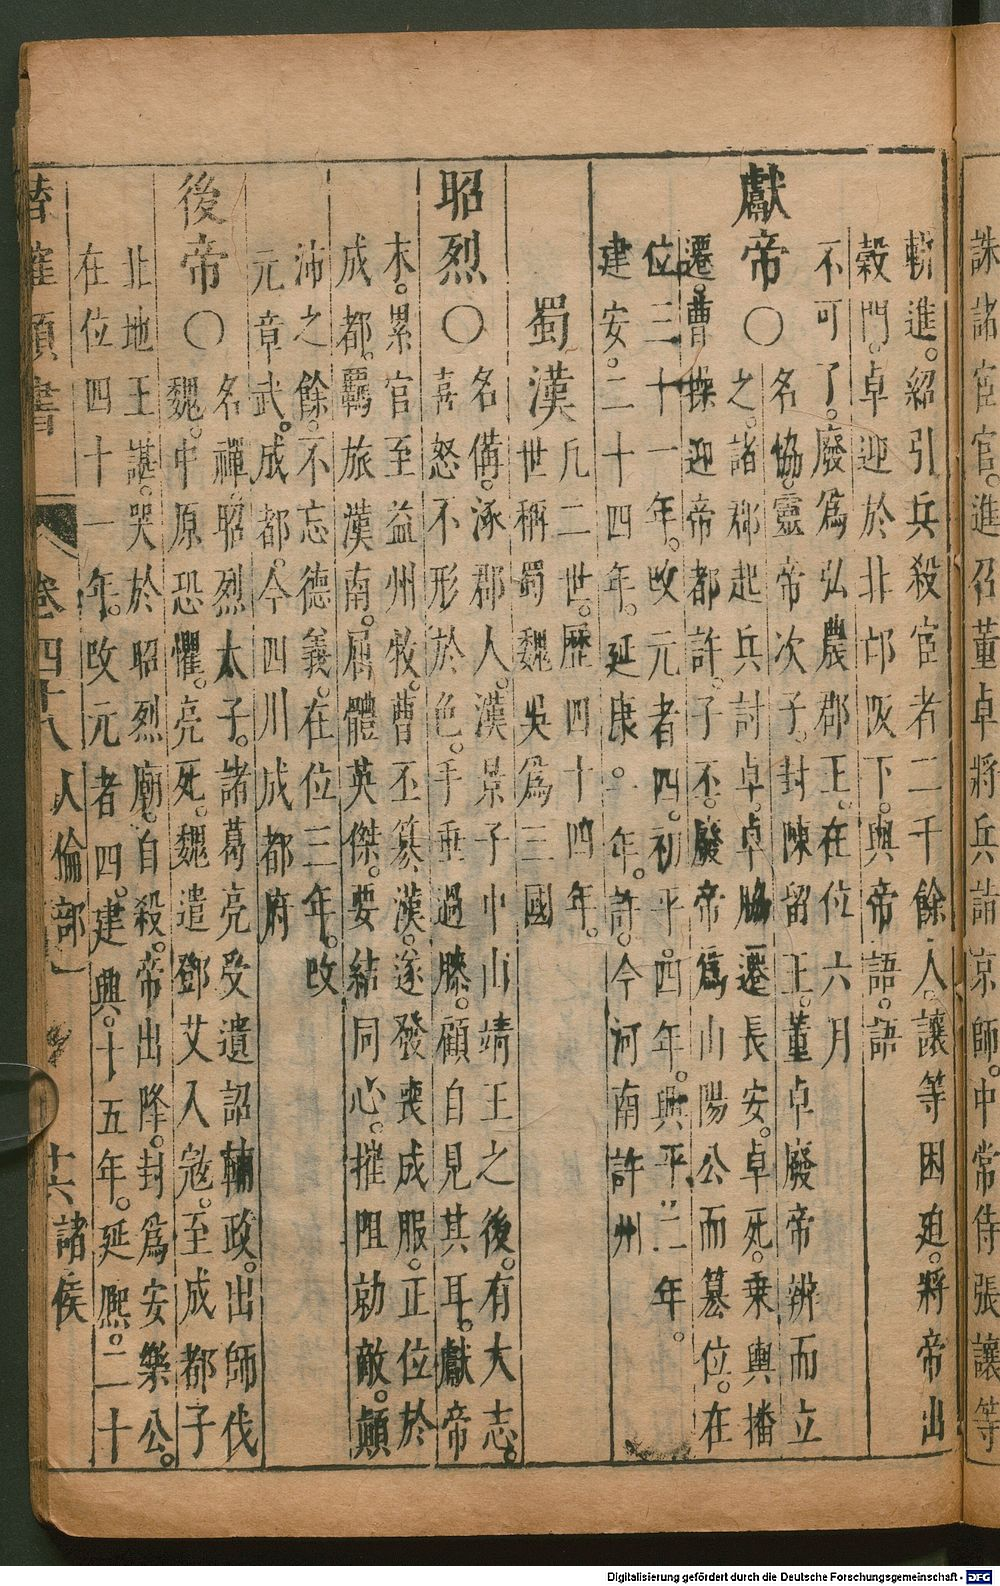 誅諸宦官。進召董卓將兵詣京師。中常侍張讓等
斬進。紹引兵殺宦者二千餘人。讓等困廹。將帝出
穀門。卓迎於北邙阪下。與帝語。語
不可了。廢爲弘農郡王。在位六月
獻帝〇名協。靈帝次子。封陳留王。董卓廢帝辨而立
之。諸郡起兵討卓。卓脇遷長安。卓死。乗輿播
遷。曹操迎帝都許。子丕。廢帝爲山陽公而簒位。在
位三十一年。攺元者四。初平。四年。興平。二年。
建安。二十四年。延康。一年。許。今河南許州
蜀漢凢二世。歷四十四年。
世稱蜀魏吳爲三國
昭烈〇名備。涿郡人。漢景子中山靖王之後。有大志。
喜怒不形於色。手垂過膝。顧自見其耳。獻帝
末。累官至益州牧。曹丕簒漢。遂發喪成服。正位於
成都。羈旅漢南。屈體英傑。要結同心。摧阻勍敵。顛
沛之餘。不忘德義。在位三年。攺
元章武。成都。今四川成都府
後帝〇名禪。昭烈太子。諸葛亮受遺詔輔政。出師伐
魏。中原恐懼。亮死。魏遣鄧艾入冦。至成都子
北地王諶。哭於昭烈廟。自殺。帝出降。封爲安樂公。
在位四十一年。攺元者四。建興。十五年。延熈。二十
卷四十八 人倫部一 十六 諸侯
Digitalisierung gefördert durch die Deutsche Forschungsgemeinschaft - DFG